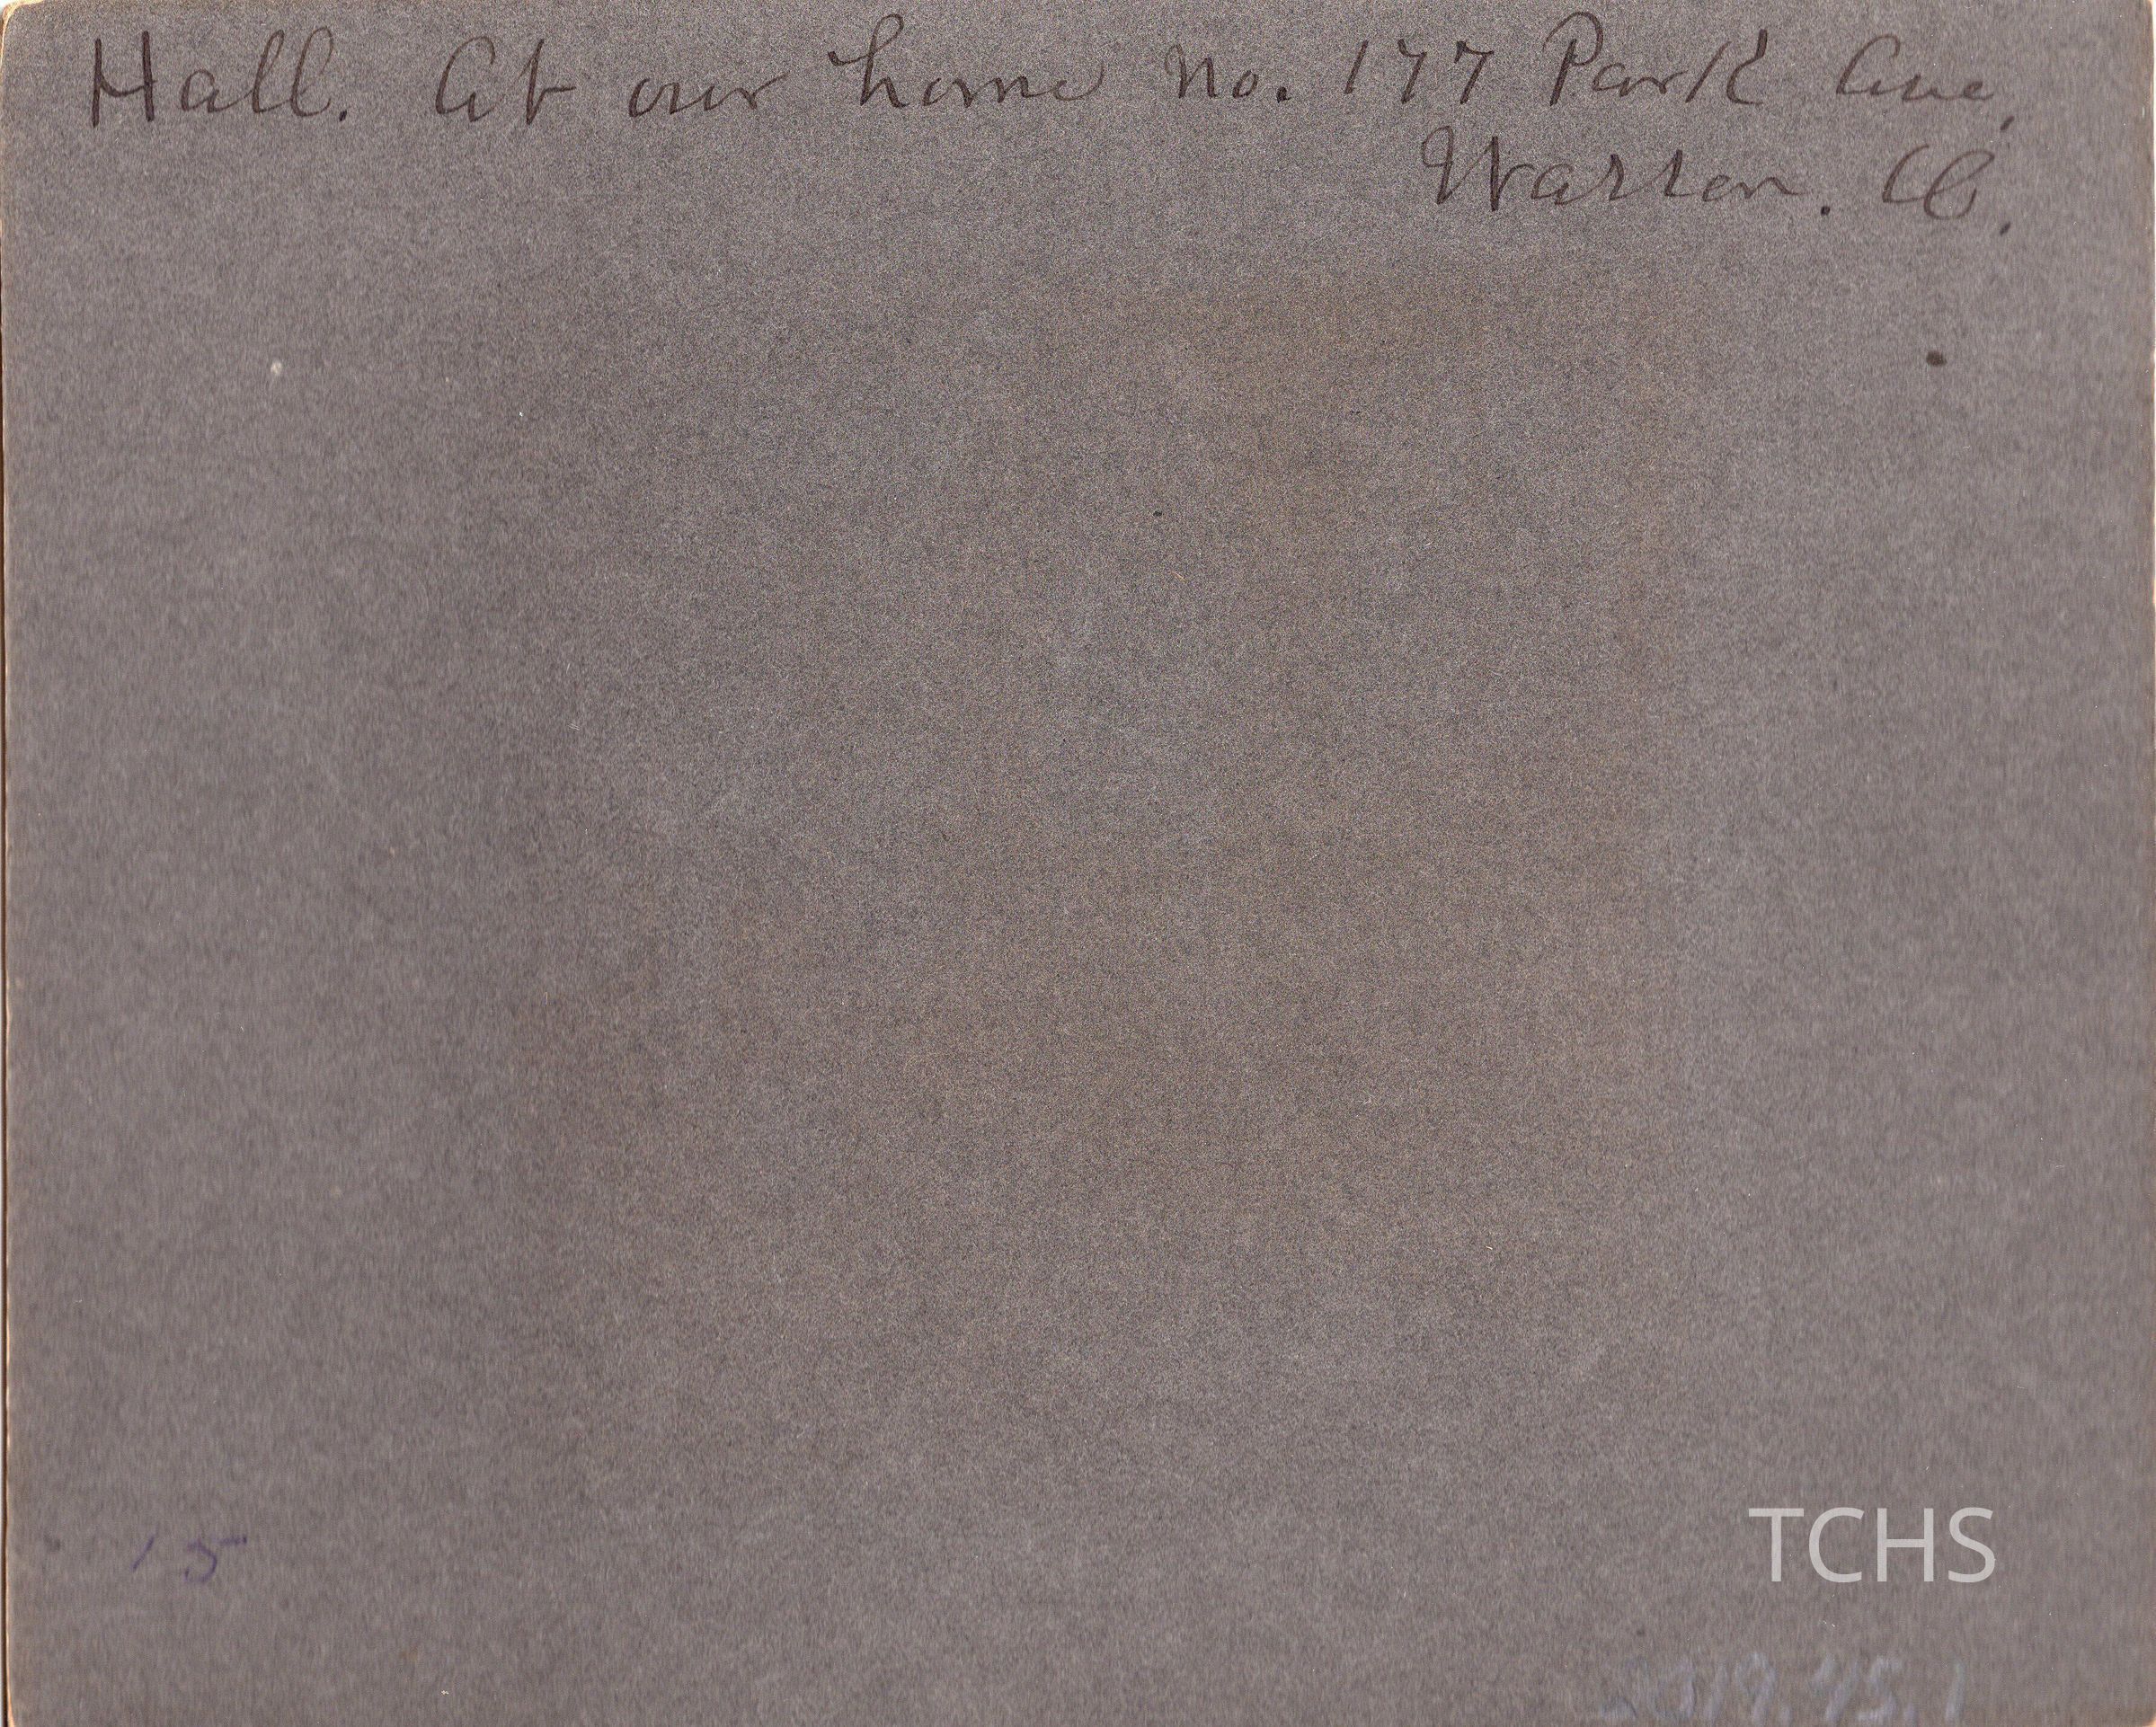 Hall. At our home no. 177 Park Ave.
Warren. O.
15
TCHS
2019.45.1